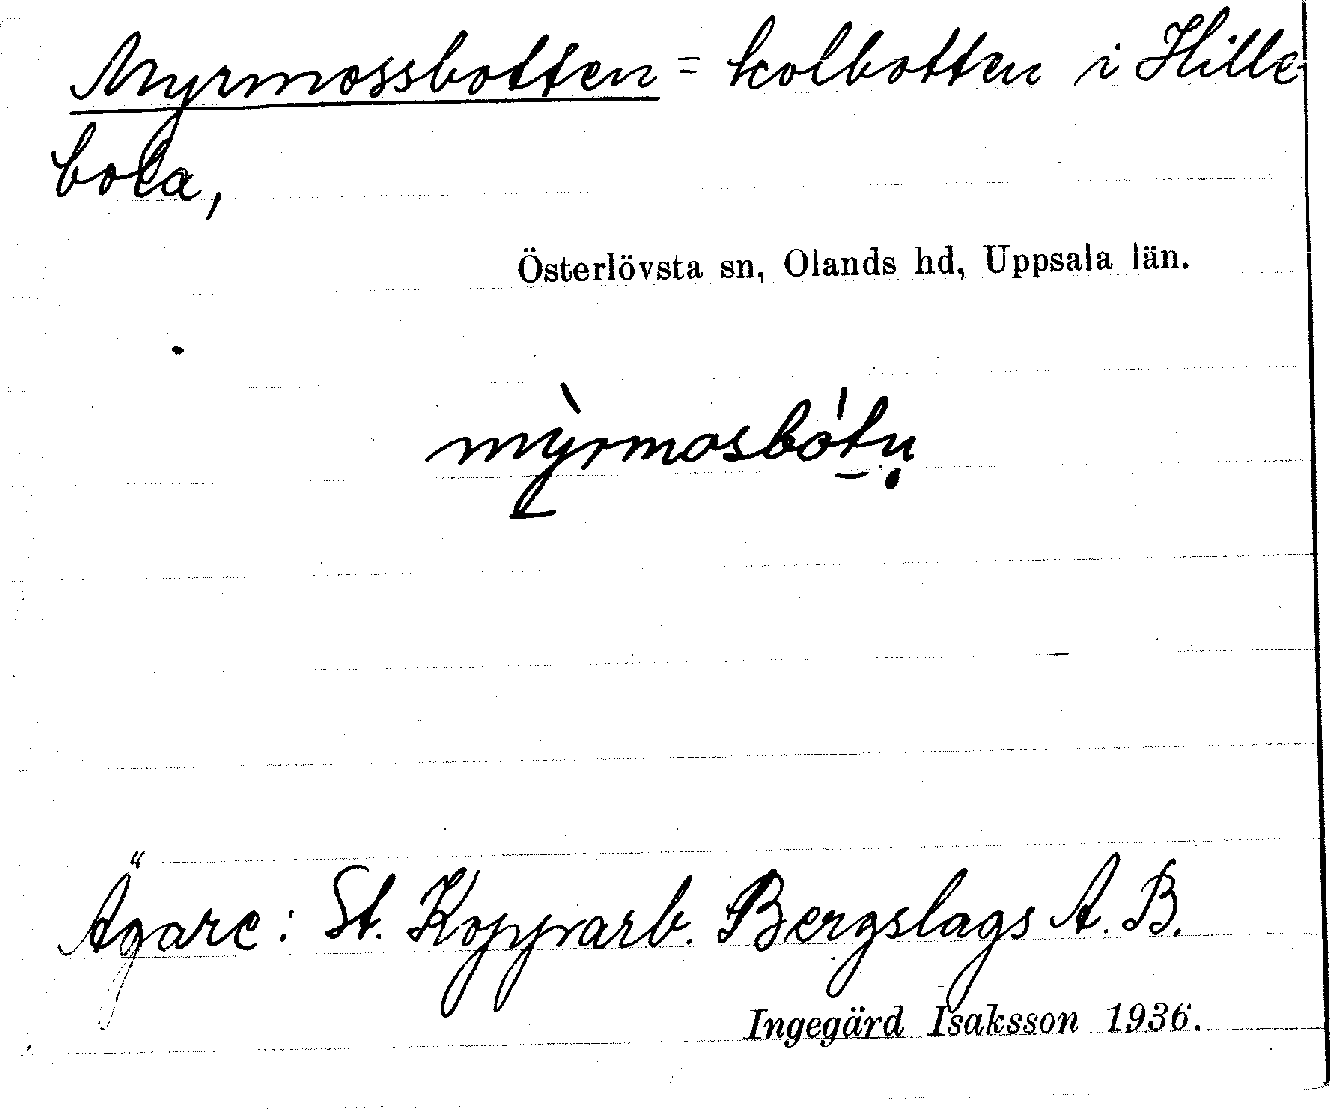 Myrmossbotten = kolbotten i Hille-
bola,
Österlövsta sn, Olands hd, Uppsala län.
mỳrmosbót̲ṇ
Ägare: St. Kopparb. Bergslags A. B.
Ingegärd Isaksson 1936.